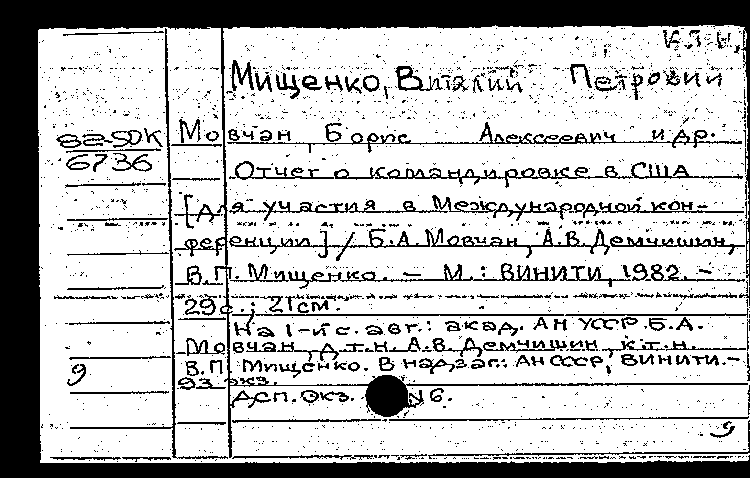 к.т.н.
Мищенко, Виталий Петрович
82-5DK Мовчан, Борис Алексеевич и др.
6736 Отчет о командировке в США
[для участия в Международной кон-
ференции] / Б.А. Мовчан, А.В. Демчишин,
В.П. Мищенко. – М.: ВИНИТИ, 1982. –
29с.; 21см.
На 1-й с. авт.: акад. АН УССР Б.А.
Мовчан, д.т.н. А.В. Демчишин, к.т.н.
9 В.П. Мищенко. В надзаг.: АН СССР, ВИНИТИ. –
93 экз.
Деп. экз. №6.
9